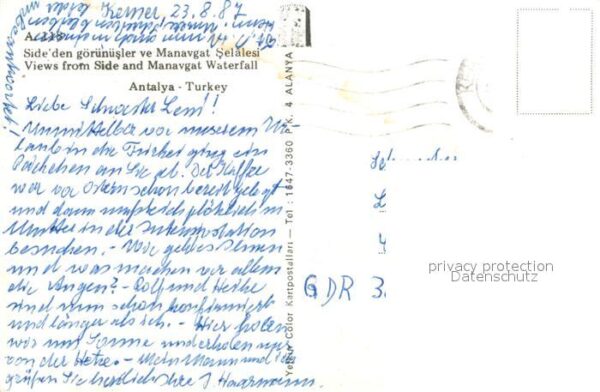 Kemer, 23.8.87
A.228
Side'den görünüşler ve Manavgat Şelâlesi
Views from Side and Manavgat Waterfall
Antalya - Turkey
Liebe Schwester Leni!
Unmittelbar vor unserem Ur-
laub in die Türkei ging ein
Päckchen an Sie ab. Der Kaffee
war vor Ostern schon bereit gelegt
und dann mußte ich plötzlich m.
Mutter in der Intensivstation
besuchen. - Wie geht es Ihnen
und was machen vor allem
die Augen? - Rolf und Heike
sind nun schon konfirmiert
und länger als ich. - Hier holen
wir uns Sonne und erholen uns
von der Hetze. - Mein Mann und ich
grüßen Sie herzlich Ihre I. Haarmann.
unbeantwortet!
Yellow Color Kartpostalları — Tel : 1647-3360 P.K. 4 ALANYA
GDR 3.
privacy protection
Datenschutz